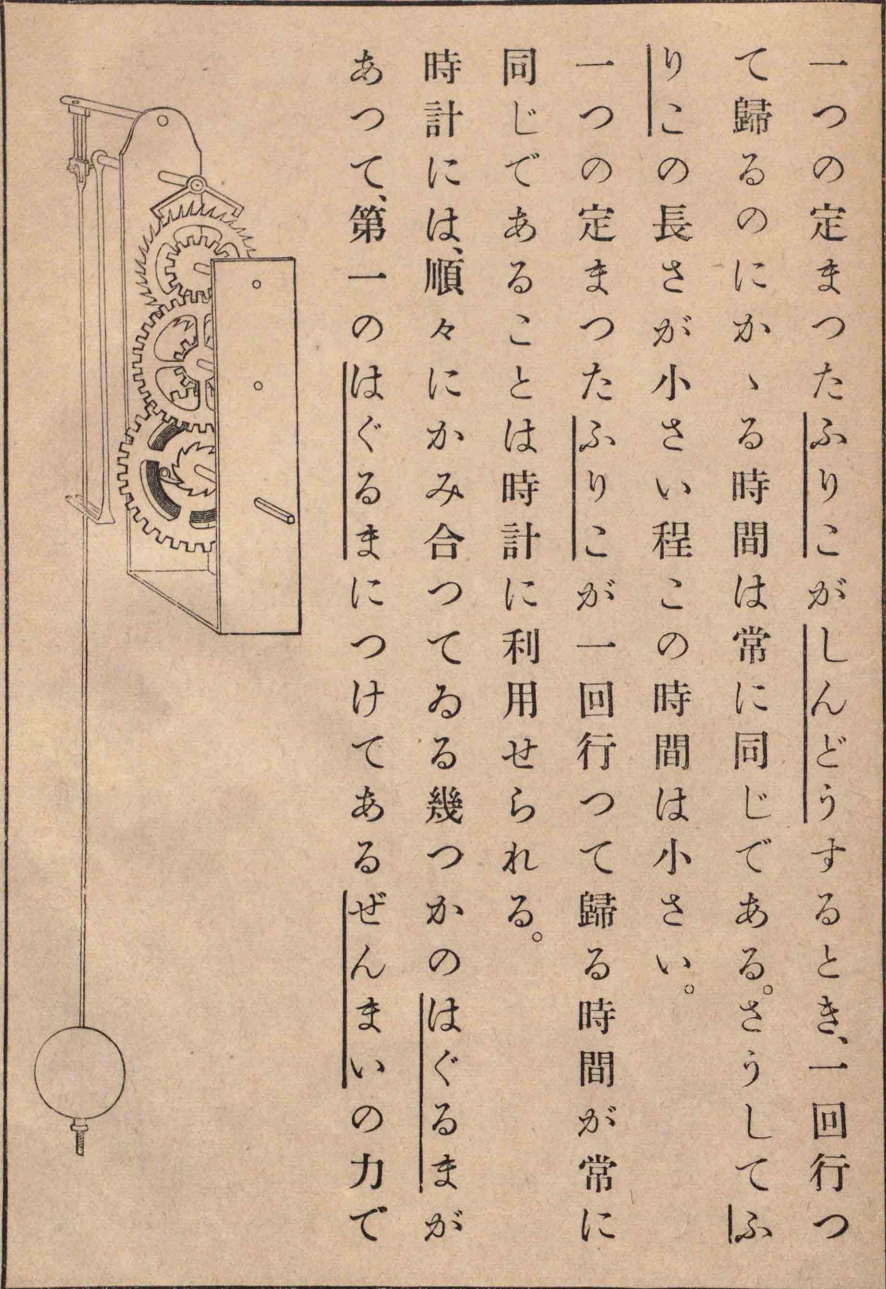 一つの定まつたふりこがしんどうするとき、一回行つ
て歸るのにかゝる時間は常に同じである。さうしてふ
りこの長さが小さい程この時間は小さい。
一つの定まつたふりこが一回行つて歸る時間が常に
同じであることは時計に利用せられる。
時計には、順々にかみ合つてゐる幾つかのはぐるまが
あつて、第一のはぐるまにつけてあるぜんまいの力で